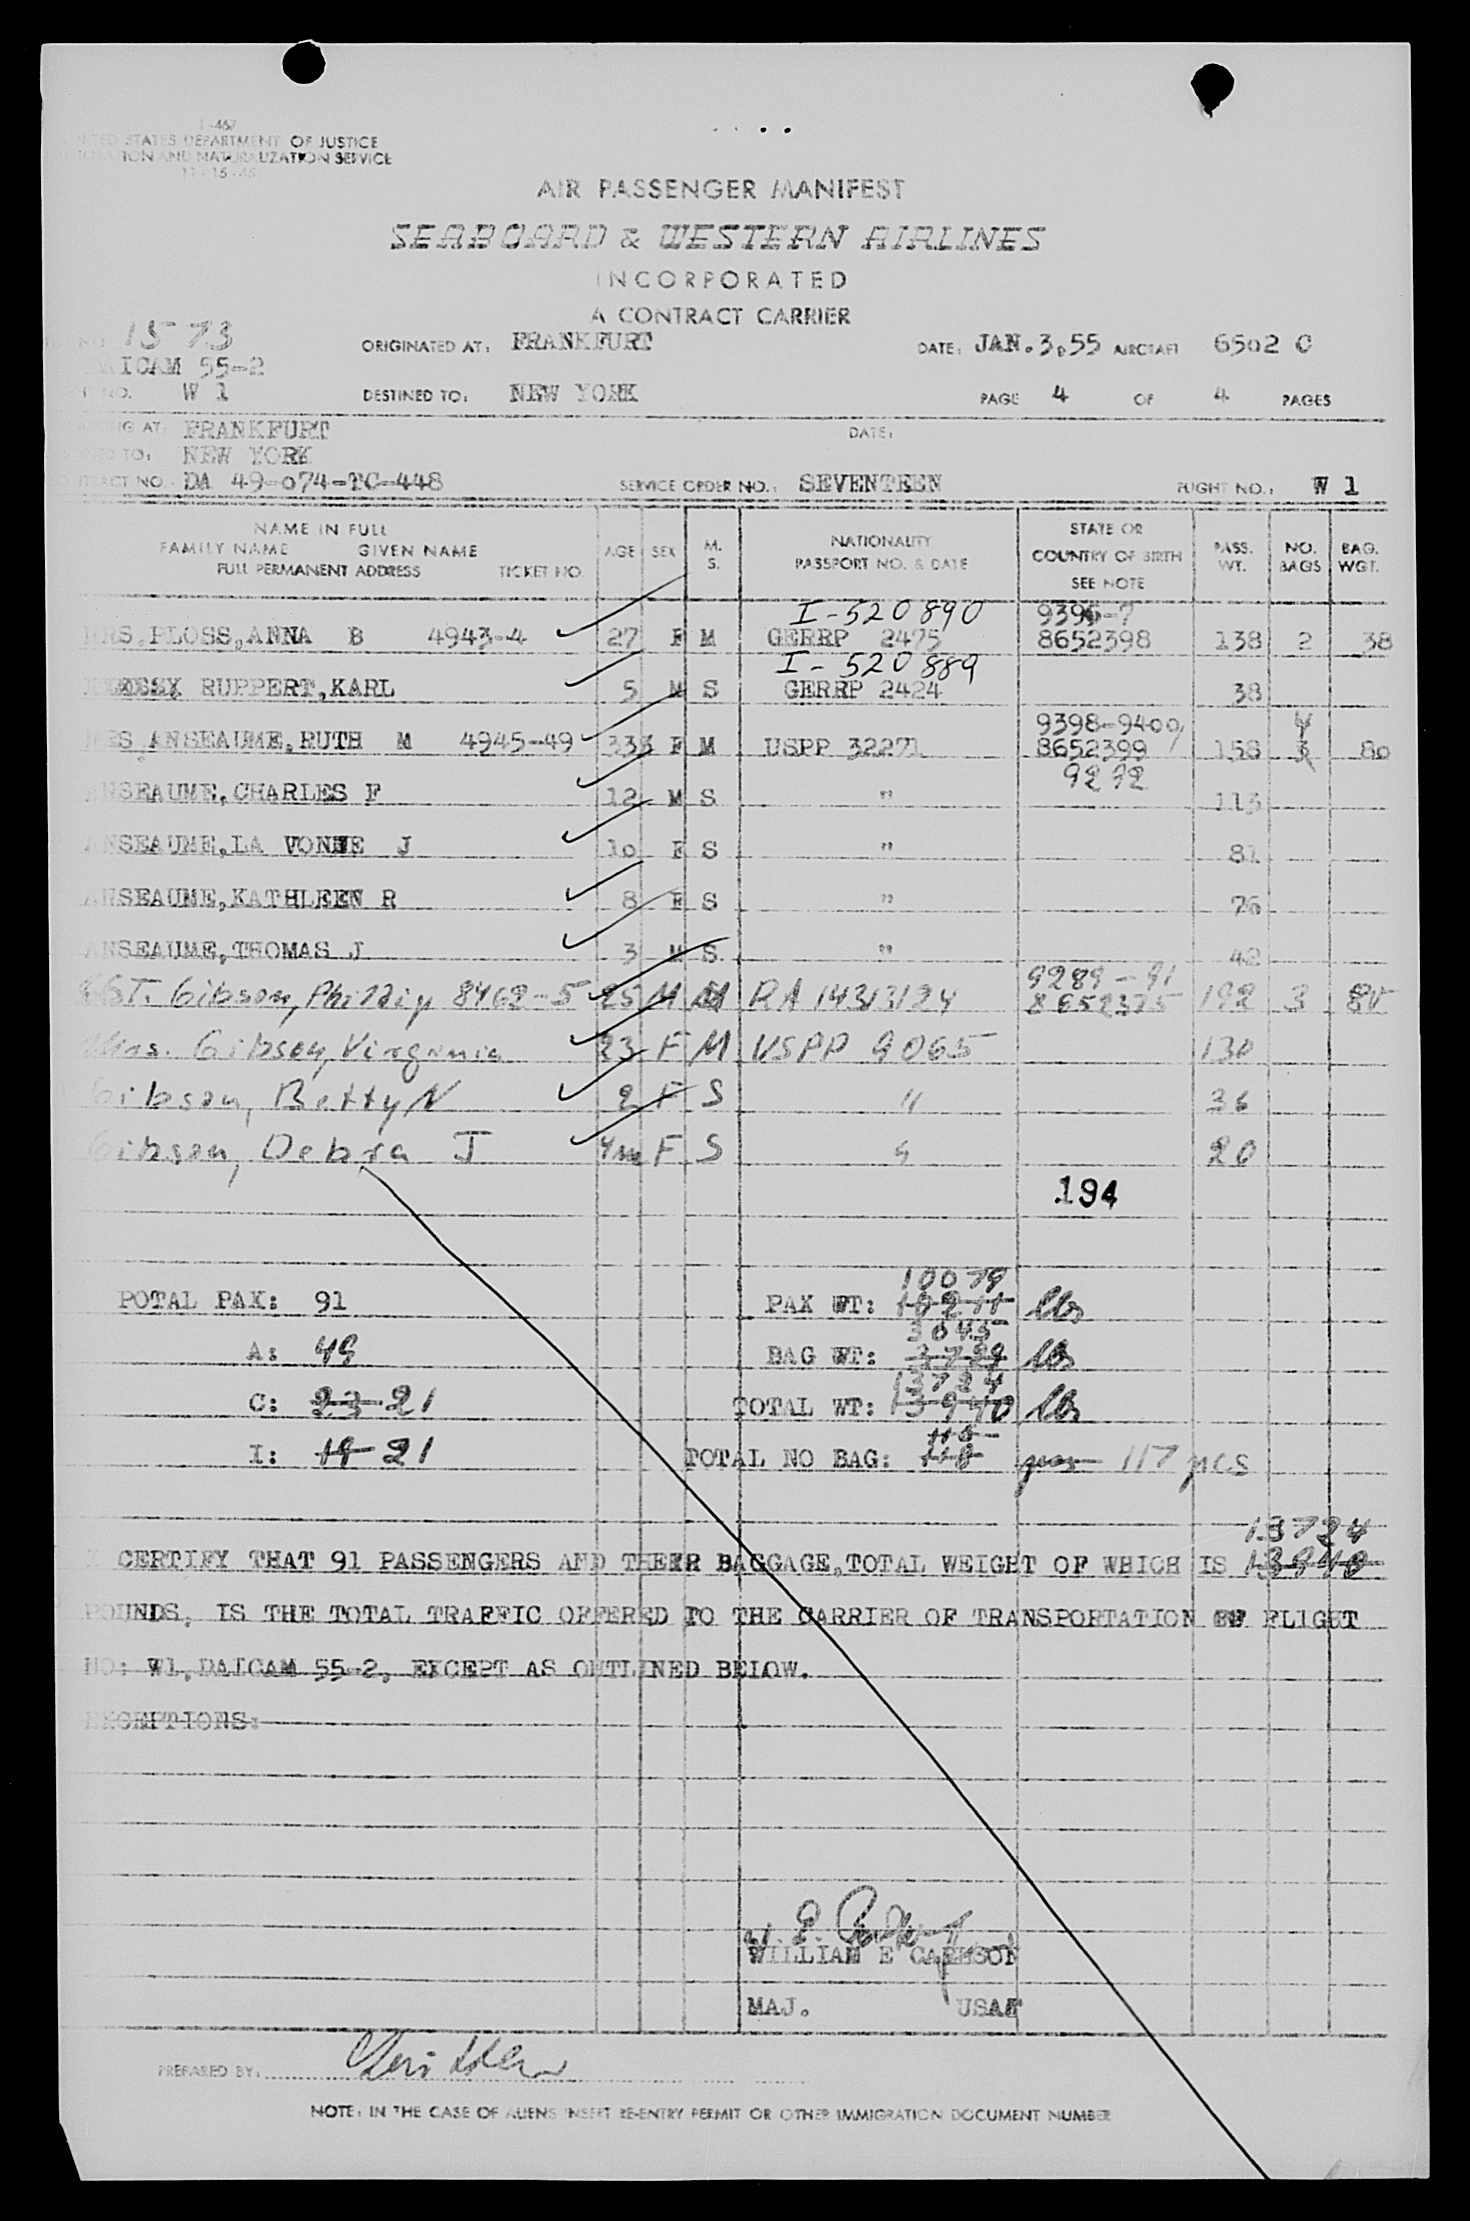 I-467
UNITED STATES DEPARTMENT OF JUSTICE
IMMIGRATION AND NATURALIZATION SERVICE
AIR PASSENGER MANIFEST
SEABOARD & WESTERN AIRLINES
INCORPORATED
A CONTRACT CARRIER
NO. 1573 ORIGINATED AT: FRANKFURT DATE: JAN.3.55 AIRCRAFT 6502 C
AICAM 55-2
NO. W 1 DESTINED TO: NEW YORK PAGE 4 OF 4 PAGES
AT: FRANKFURT DATE:
TO: NEW YORK
NO. DA 49-074-TC-448 SERVICE ORDER NO.: SEVENTEEN FLIGHT NO.: W 1
NAME IN FULL
FAMILY NAME GIVEN NAME
FULL PERMANENT ADDRESS TICKET NO.
AGE SEX M. S. NATIONALITY PASSPORT NO. & DATE STATE OR COUNTRY OF BIRTH SEE NOTE PASS. WT. NO. BAGS BAG. WGT.
I-520890 9396-7
MRS.PLOSS,ANNA B 4943-4 27 F M GERRP 2475 8652398 138 2 38
I-520889
RUPPERT,KARL 5 M S GERRP 2424 38
9398-9400 4
MRS ANSEAUME,RUTH M 4945-49 333 F M USPP 32271 8652399 158 3 80
9272
ANSEAUME,CHARLES F 12 M S " 113
ANSEAUME,LA VONNE J 10 F S " 81
ANSEAUME,KATHLEEN R 8 F S " 76
ANSEAUME,THOMAS J 3 M S " 42
9289-91
SGT. Gibson, Phillip 8462-5 25 M M RA 14313124 8652375 192 3 85
Mrs. Gibson, Virginia 23 F M USPP 9065 130
Gibson, Betty N 2 F S " 36
Gibson, Debra J 4m F S " 20
194
10079
POTAL PAX: 91 PAX WT: 10211 lbs
3645
A: 49 BAG WT: 3729 lbs
13724
C: 23 21 TOTAL WT: 13940 lbs
115
I: 19 21 TOTAL NO BAG: 118 pcs 117 pcs
13724
I CERTIFY THAT 91 PASSENGERS AND THEIR BAGGAGE,TOTAL WEIGHT OF WHICH IS 13940
POUNDS, IS THE TOTAL TRAFFIC OFFERED TO THE CARRIER OF TRANSPORTATION OF FLIGHT
NO: W1,DAICAM 55-2, EXCEPT AS OUTLINED BELOW.
EXCEPTIONS:
WILLIAM E CARLSON
MAJ. USAF
PREPARED BY:
NOTE: IN THE CASE OF ALIENS INSERT RE-ENTRY PERMIT OR OTHER IMMIGRATION DOCUMENT NUMBER